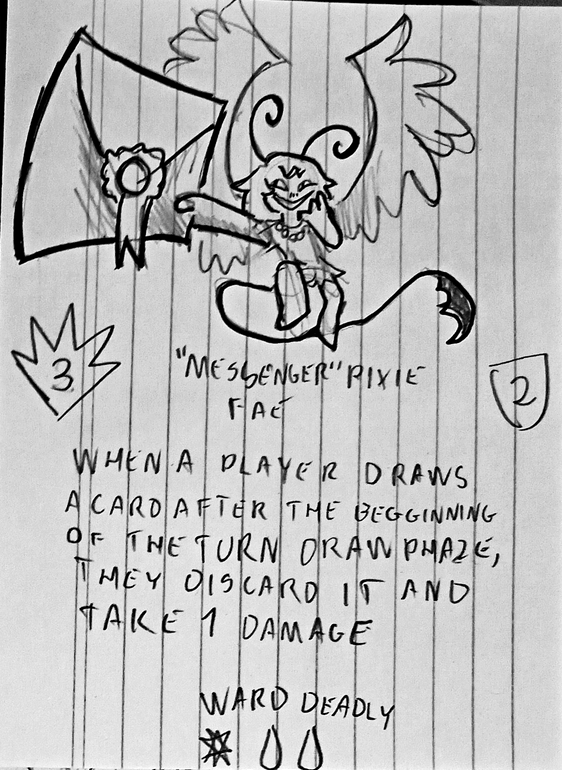 3
"MESSENGER" PIXIE
2
FAE
WHEN A PLAYER DRAWS
A CARD AFTER THE BEGGINNING
OF THE TURN DRAW PHAZE,
THEY DISCARD IT AND
TAKE 1 DAMAGE
WARD DEADLY